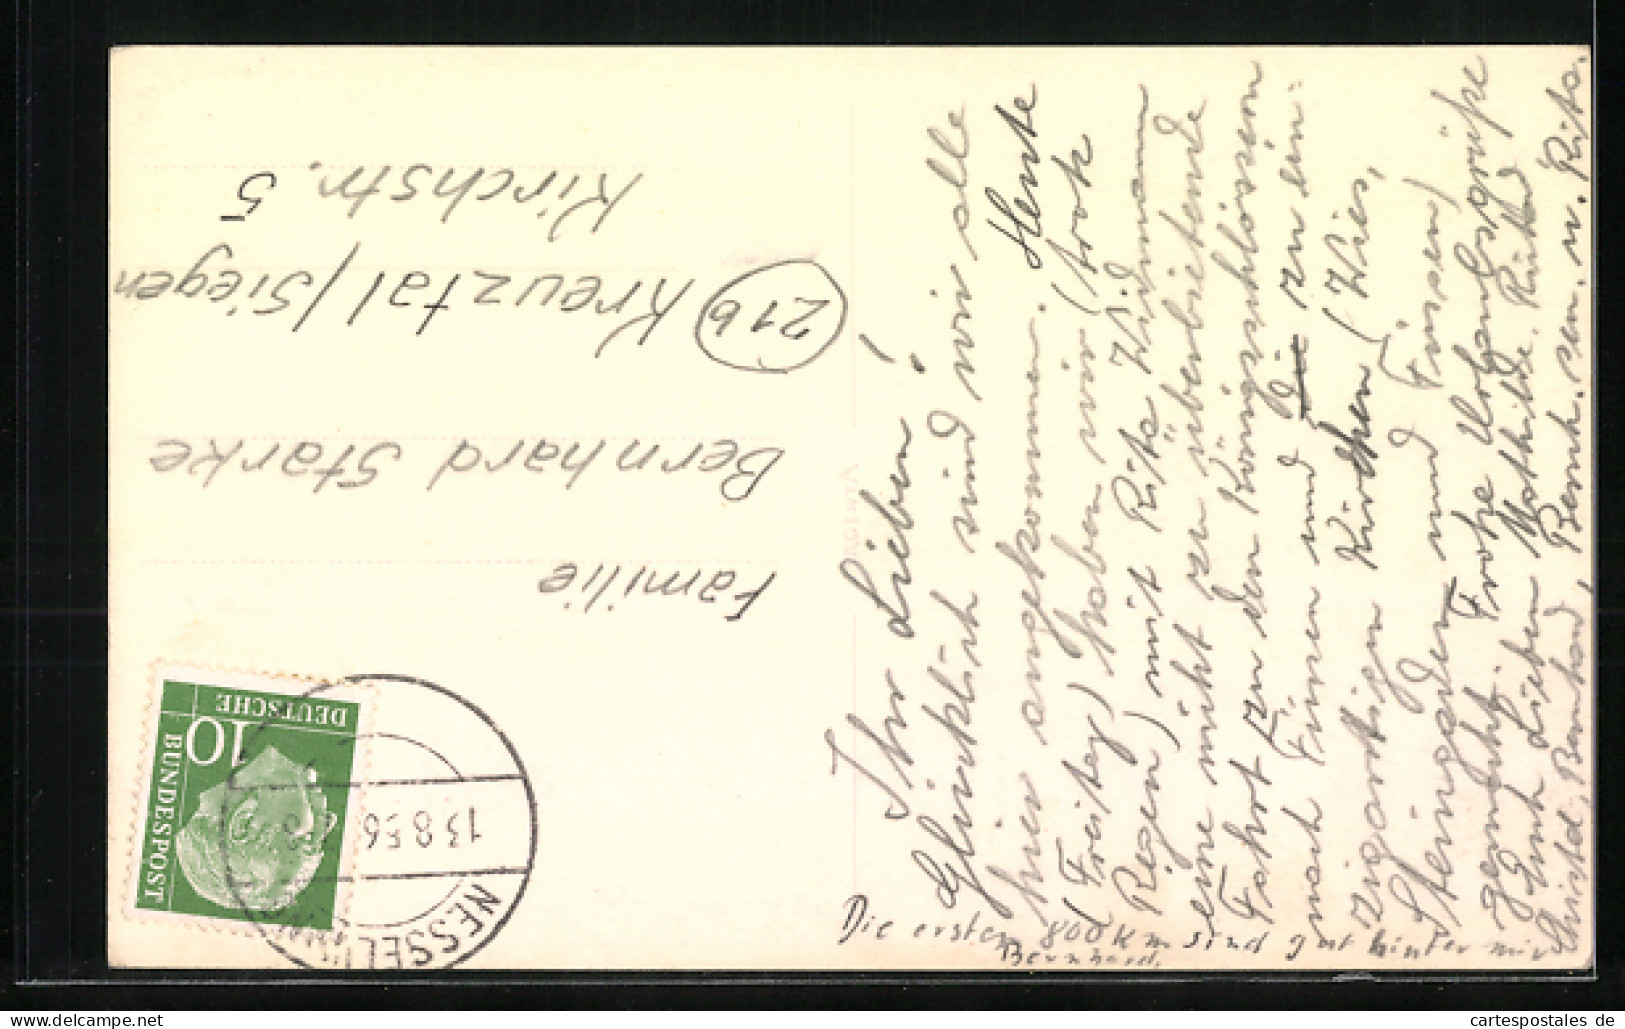 Ihr Lieben!
Glücklich sind wir alle
hier angekommen. Heute
(Freitag) haben wir (trotz
Regen) mit Rita Widmann
eine nicht zu überbietende
Fahrt zu den Königsschlössern
nach Füssen und die zu ein-
zigartigen Kirchen (Wies,
Steingaden und Füssen)
gemacht. Frohe Urlaubsgrüße
Euch Lieben Mathilde,
Christel, Bernhard, Bernh. sen. u. Rita.
Die ersten 800 Km sind gut hinter mir
Bernhard.
Familie
Bernhard Starke
21b Kreuztal/Siegen
Kirchstr. 5
DEUTSCHE
BUNDESPOST
10
13.8.56
NESSEL
cartespostales.de
www.cartespostales.de/postcard/
cartespostales de